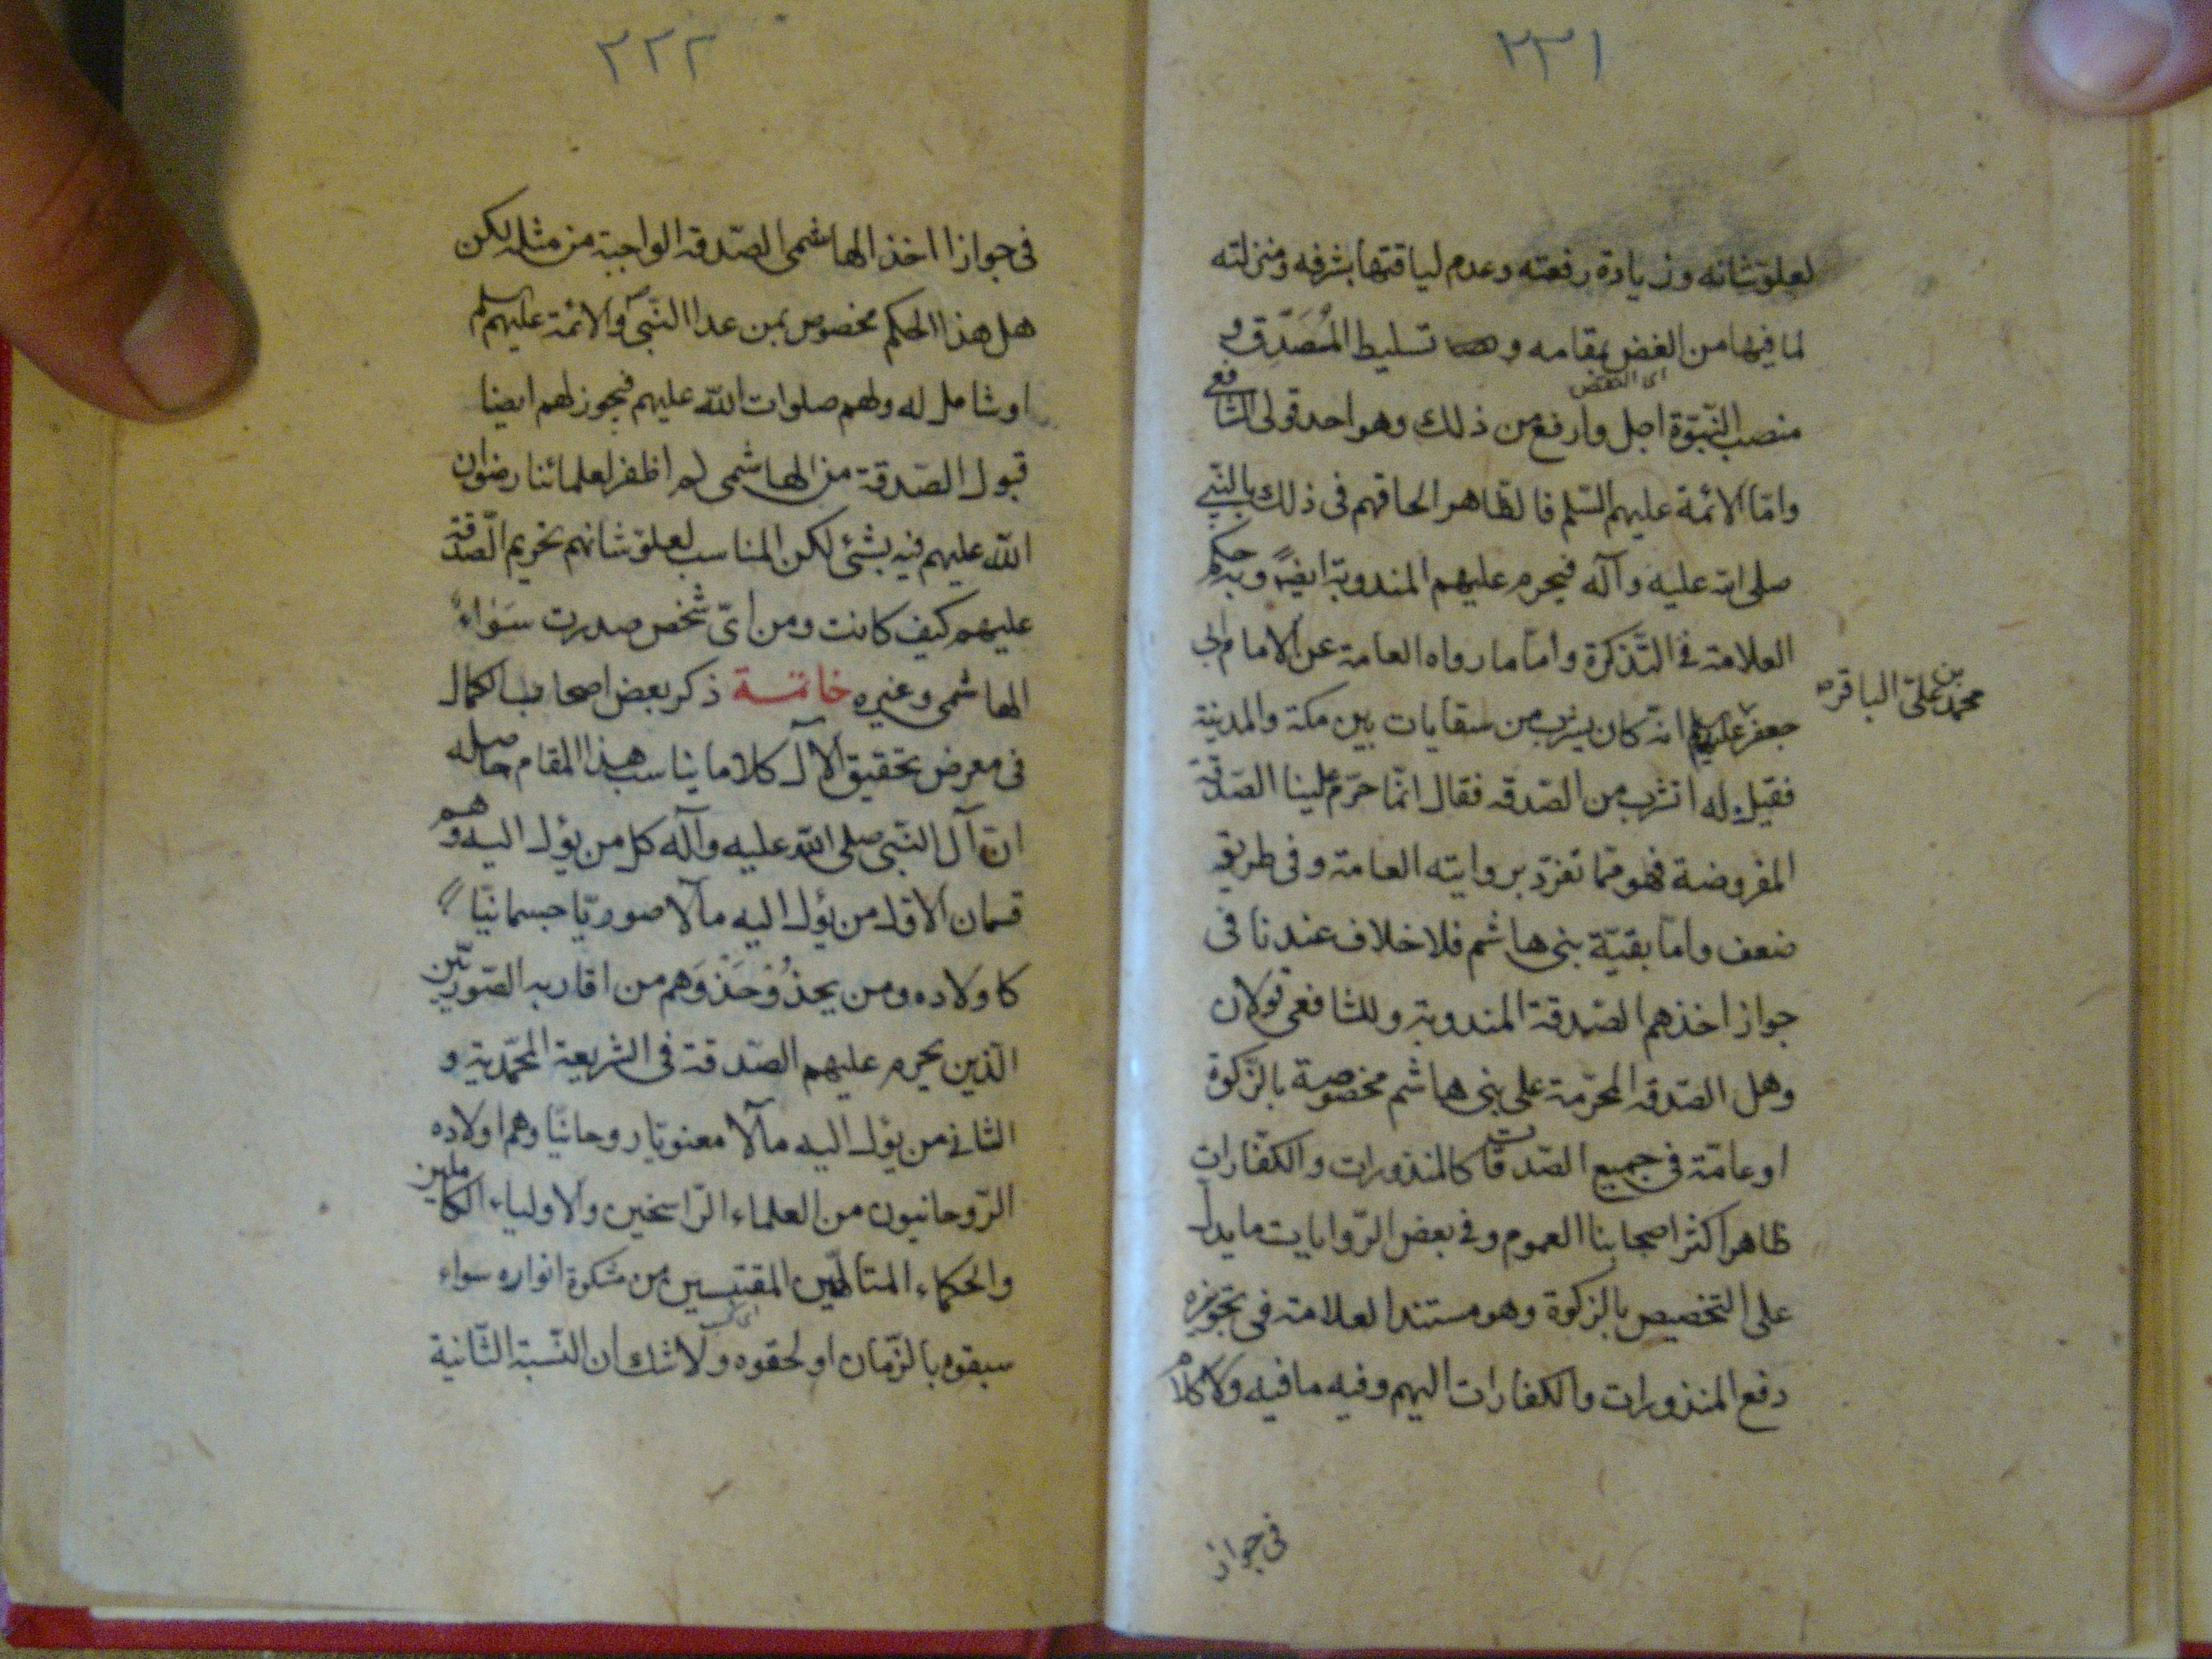 ٢٣١
لعلو شانه وزيادة رفعته وعدم لياقتها بشرفه ومنزلته
لما فيها من الغض بمقامه و تسليط المُصَدّق و
اى النقص
منصب النّبوّة اجل وارفع من ذلك وهو احد قولى الشافعي
وامّا الائمة عليهم السّلم فالظاهر الحاقهم فى ذلك بالنّبي
صلى الله عليه وآله فيحرم عليهم المندوبة ايضاً وبه حكم
العلامة فى التّذكرة وامّا ما رواه العامة عن الامام ابى
جعفر عليهم انّه كان يشرب من سقايات بين مكة والمدينة
محمد بن على الباقر
فقيل له اتشرب من الصّدقه فقال انّما حرّم علينا الصّدقة
المفروضة فهو ممّا تفرّد بروايته العامة وفى طريقه
ضعف وامّا بقيّة بنى هاشم فلا خلاف عندنا فى
جواز اخذهم الصّدقة المندوبة وللشافعى قولان
وهل الصّدقه المحرّمة على بنى هاشم مخصوصة بالزّكوة
او عامّة فى جميع الصّدقات كالمنذورات والكفّارات
ظاهر اكثر اصحابنا العموم وفى بعض الرّوايات ما يدل
على التخصيص بالزكوة وهو مستند العلامة فى تجويزه
دفع المنذورات والكفارات اليهم وفيه ما فيه ولا كلام
فى جواز
٢٣٢
فى جواز اخذ الهاشمى الصّدقه الواجبة من مثله لكن
هل هذا الحكم مخصوص بمن عدا النّبى والائمة عليهم سلم
او شامل له ولهم صلوات الله عليهم فيجوز لهم ايضا
قبول الصّدقة من الهاشمى لم اظفر لعلمائنا رضوان
الله عليهم فيه بشئ لكن المناسب لعلو شانهم تحريم الصّدقة
عليهم كيف كانت ومن اىّ شخص صدرت سَواءٌ
الهاشمى وغيره خاتمة ذكر بعض اصحاب الكمال
فى معرض تحقيق الآل كلاما يناسب هذا المقام حاصله
انّ آل النّبى صلى الله عليه وآله كل من يؤل اليه وهم
قسمان الاوّل من يؤل اليه مآلا صوريّا جسمانيّا
كاولاده ومن يحذُو حَذْوَهم من اقاربه الصّوريّين
الّذين يحرم عليهم الصّدقة فى الشريعة المحمّدية و
الثانى من يؤل اليه مآلا معنويّا روحانيّا وهم اولاده
الرّوحانيون من العلماء الرّاسخين والاولياء الكاملين
والحكماء المتالّهين المقتبسين من مشكوة انواره سواء
سبقوه بالزّمان او لحقوه ولا شك ان النّسبة الثّانية